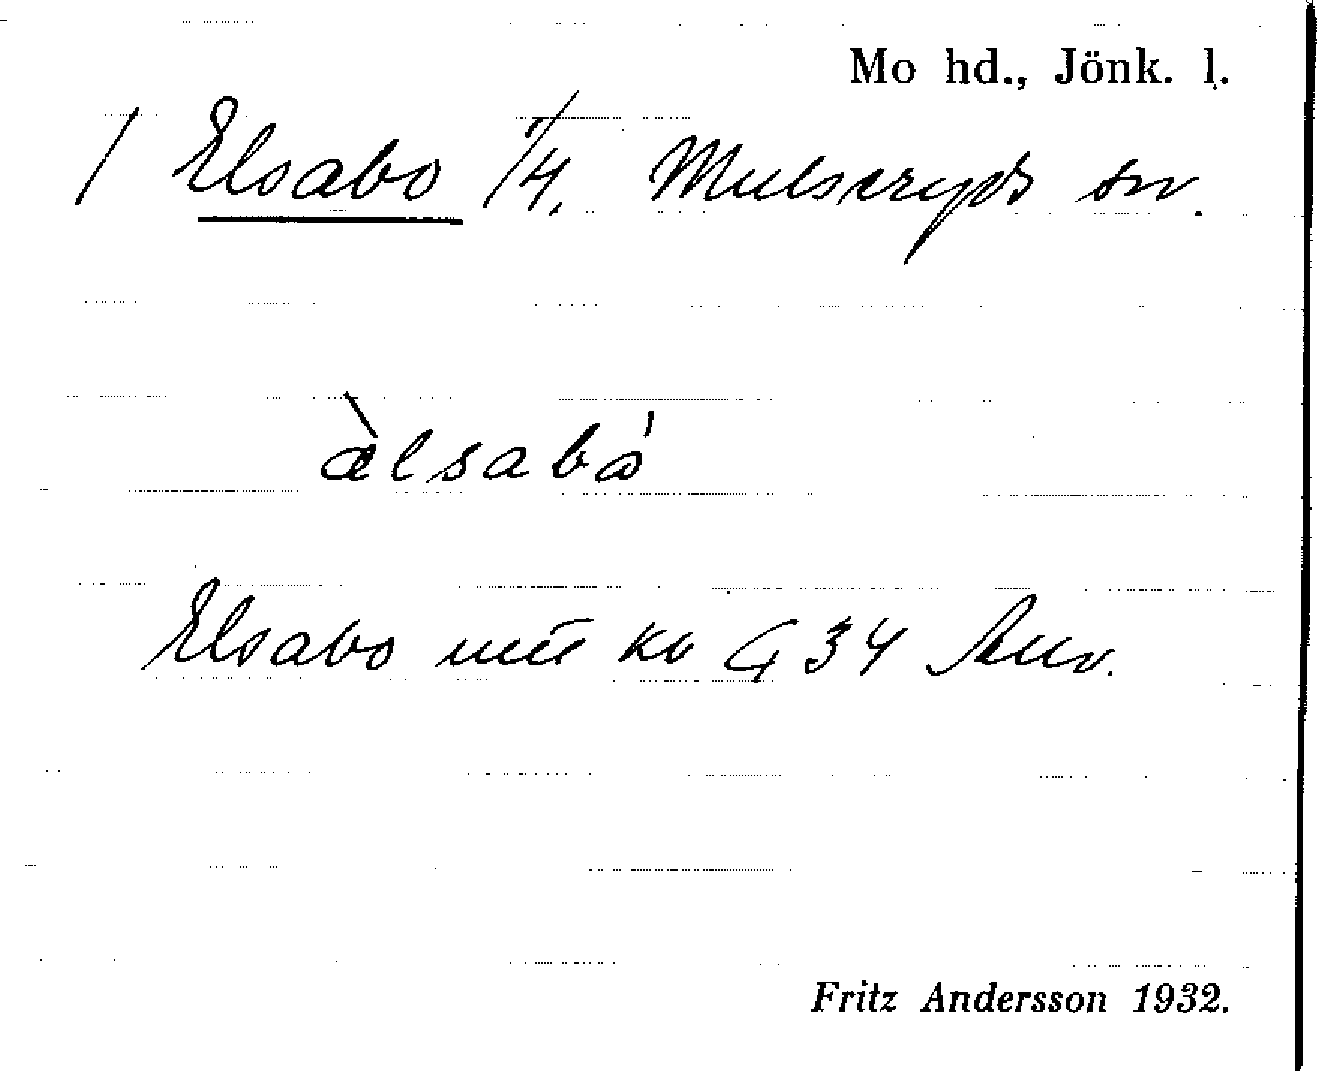 Mo hd., Jönk. l.
/ Elsabo 1/4. Mulseryds sn.
àlsabá
Elsabo
Fritz Andersson 1932.